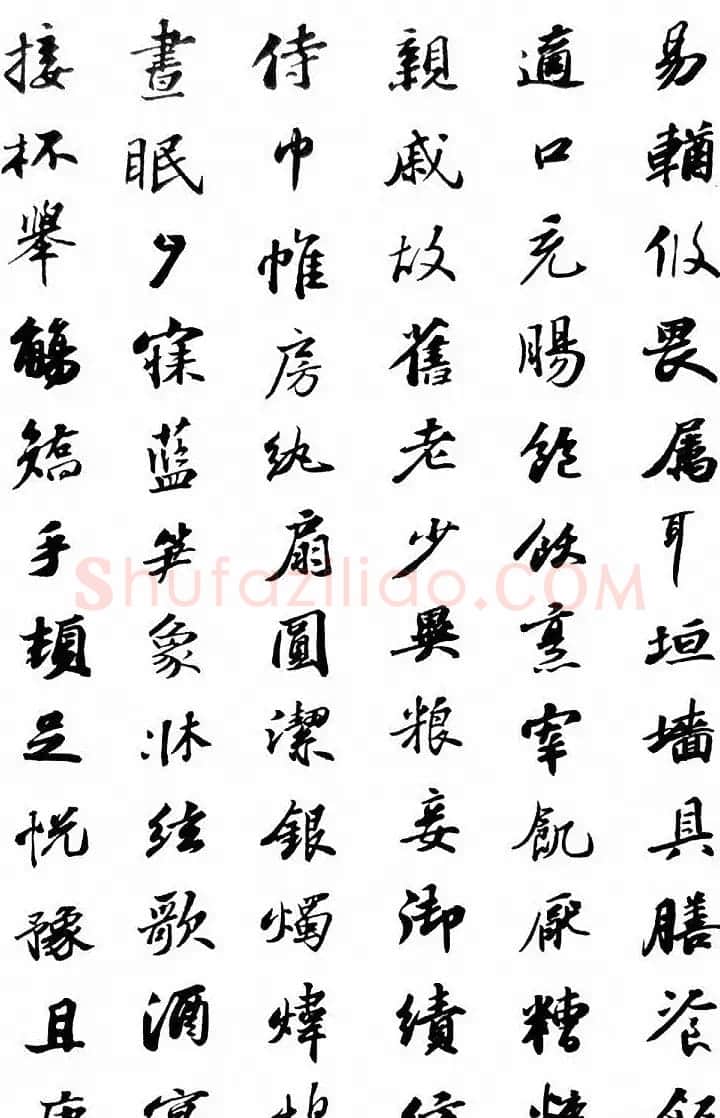 易輶攸畏屬耳垣墻具膳飡飯
適口充腸飽飫烹宰飢厭糟糠
親戚故舊老少異粮妾御績紡
侍巾帷房紈扇圓潔銀燭煒煌
晝眠夕寐藍笋象牀絃歌酒宴
接杯舉觴矯手頓足悦豫且康
Shufaziliao.COM